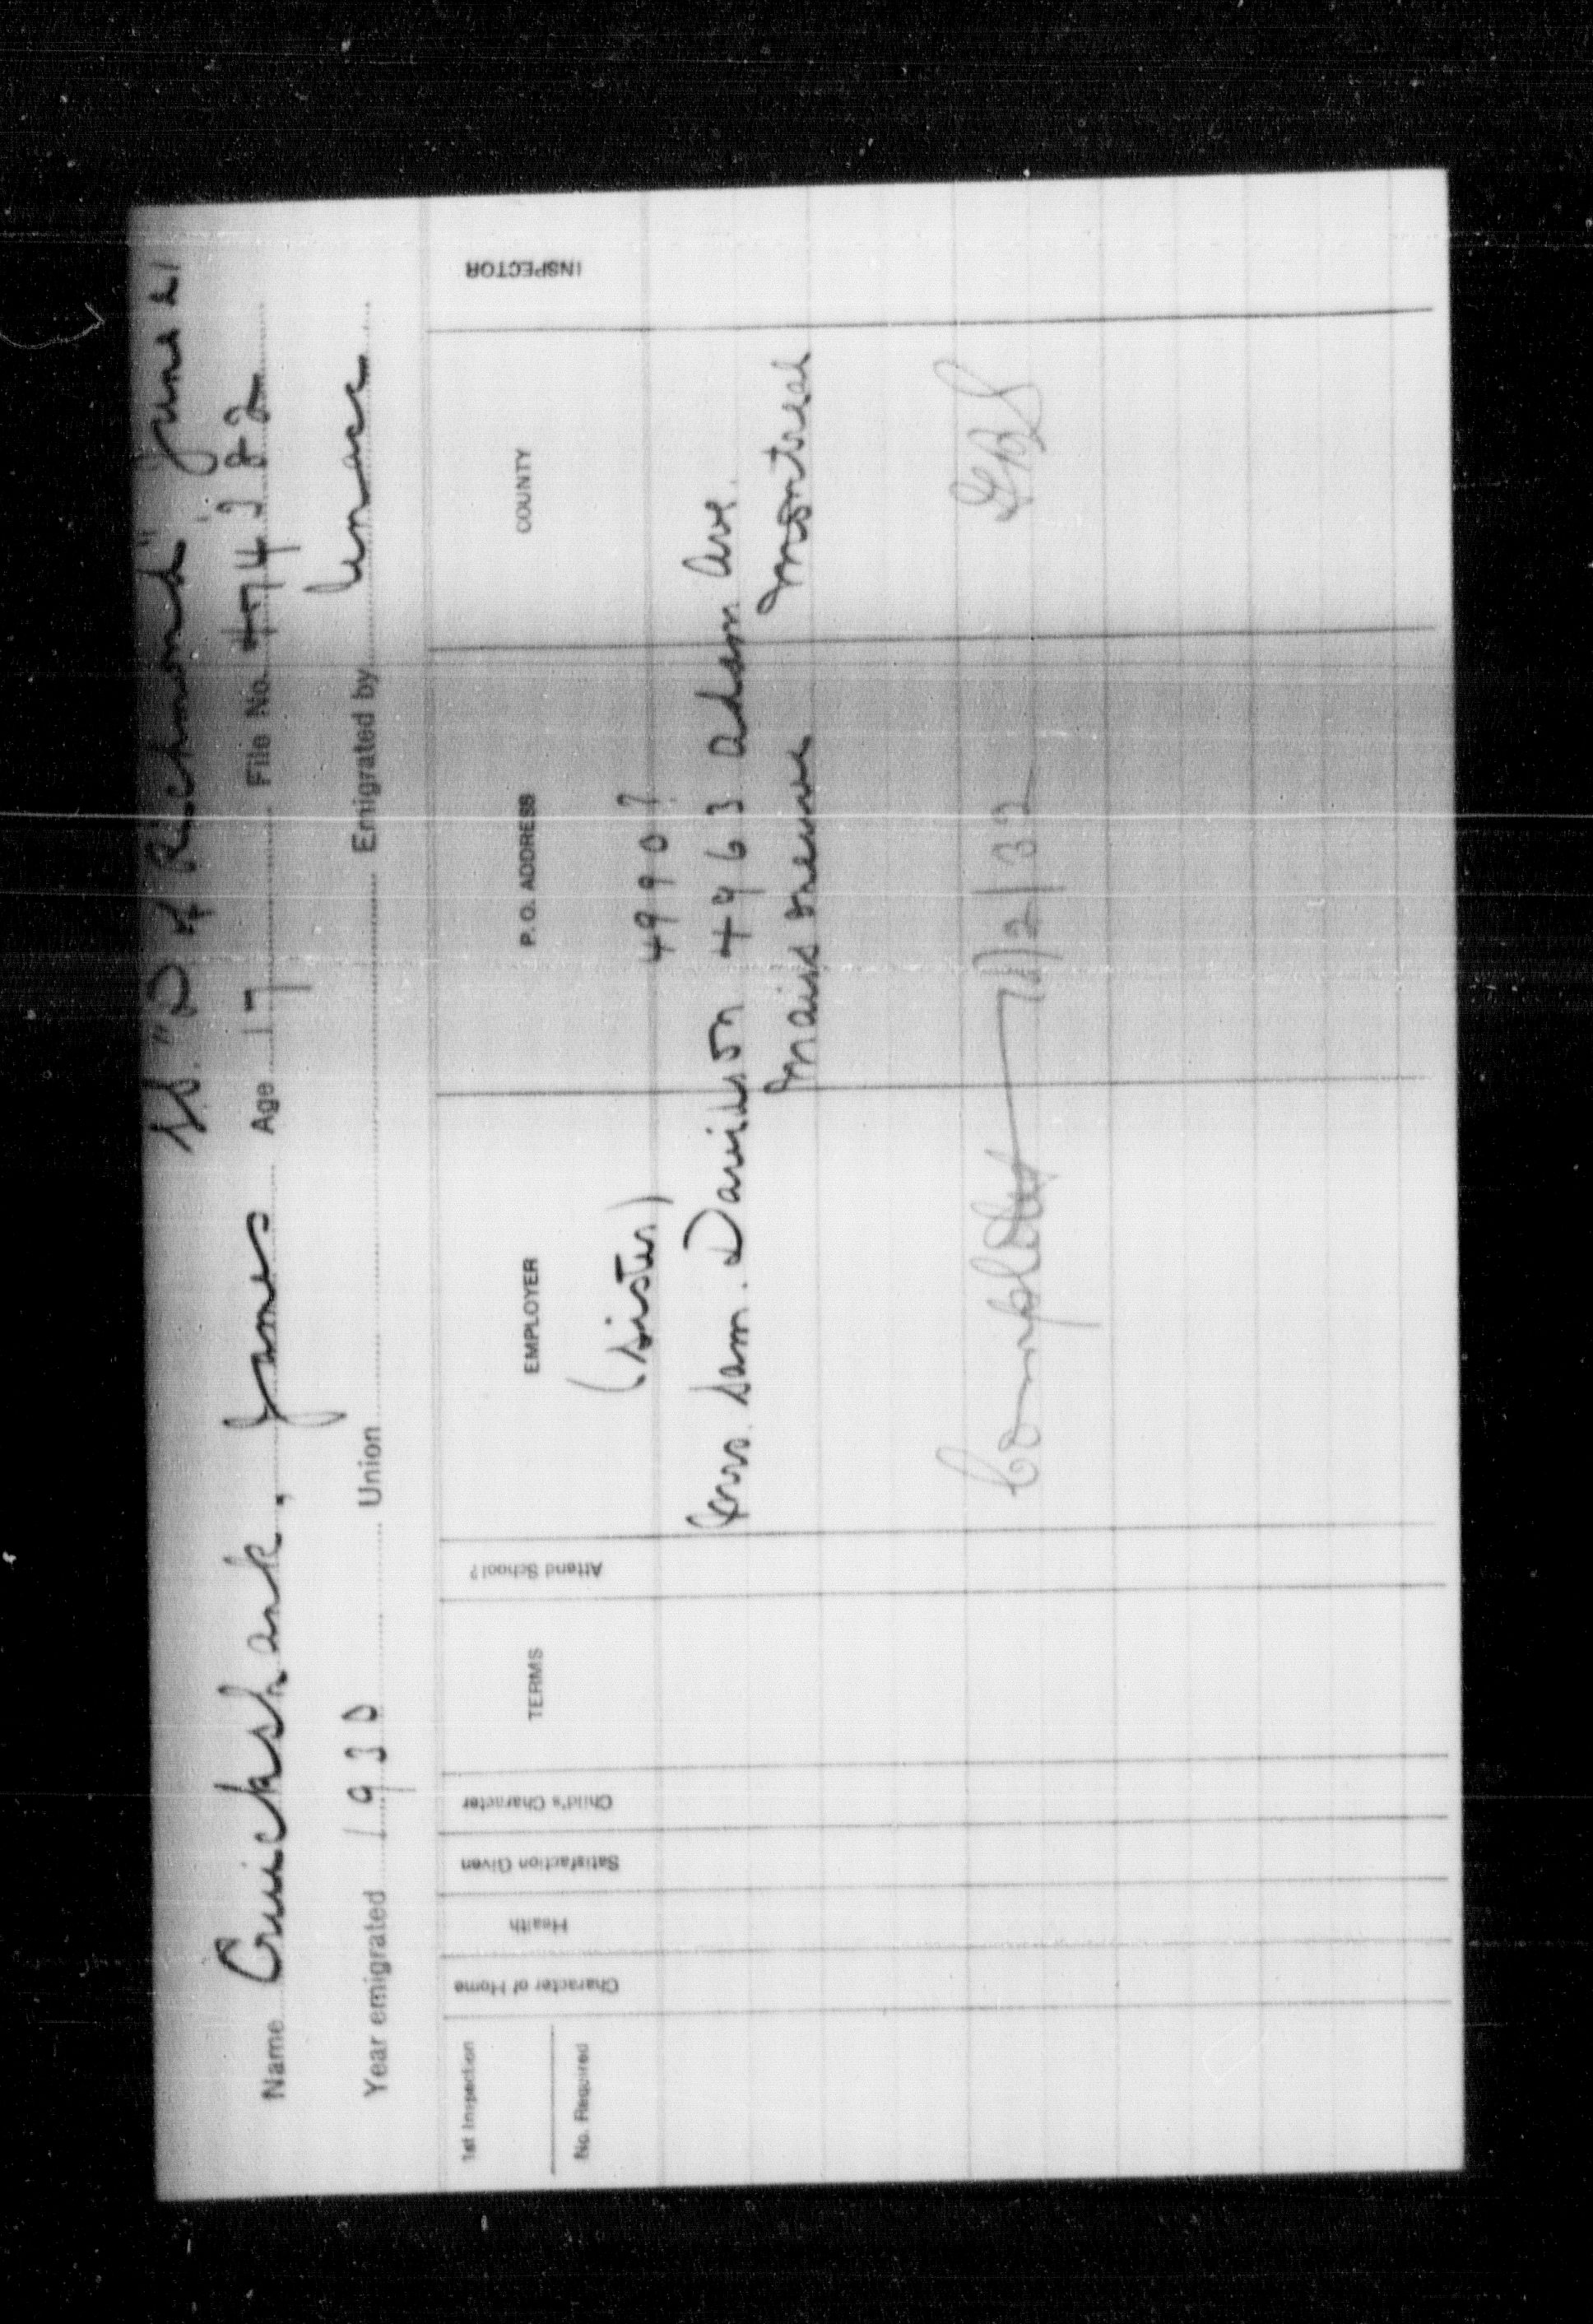 SS. "D of Richmond" June 21
Name Cruickshank, James Age 17 File No. 474282
Year emigrated 1930 Union Emigrated by Unacc
1st Inspection
No. Required
Character of Home
Health
Satisfaction Given
Child's Character
TERMS
Attend School?
EMPLOYER
P. O. ADDRESS
COUNTY
INSPECTOR
(Sister) 49907
Mrs. Sam. Davidson 4963 Adam Ave.
Maisonneuve Montreal
Completed 7/2/32 GBS